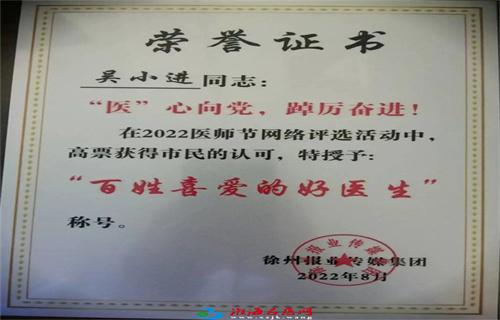 荣誉证书
吴小进同志：
“医”心向党，踔厉奋进！
在2022医师节网络评选活动中，
高票获得市民的认可，特授予：
“百姓喜爱的好医生”
称号。
徐州报业传媒集团
2022年8月